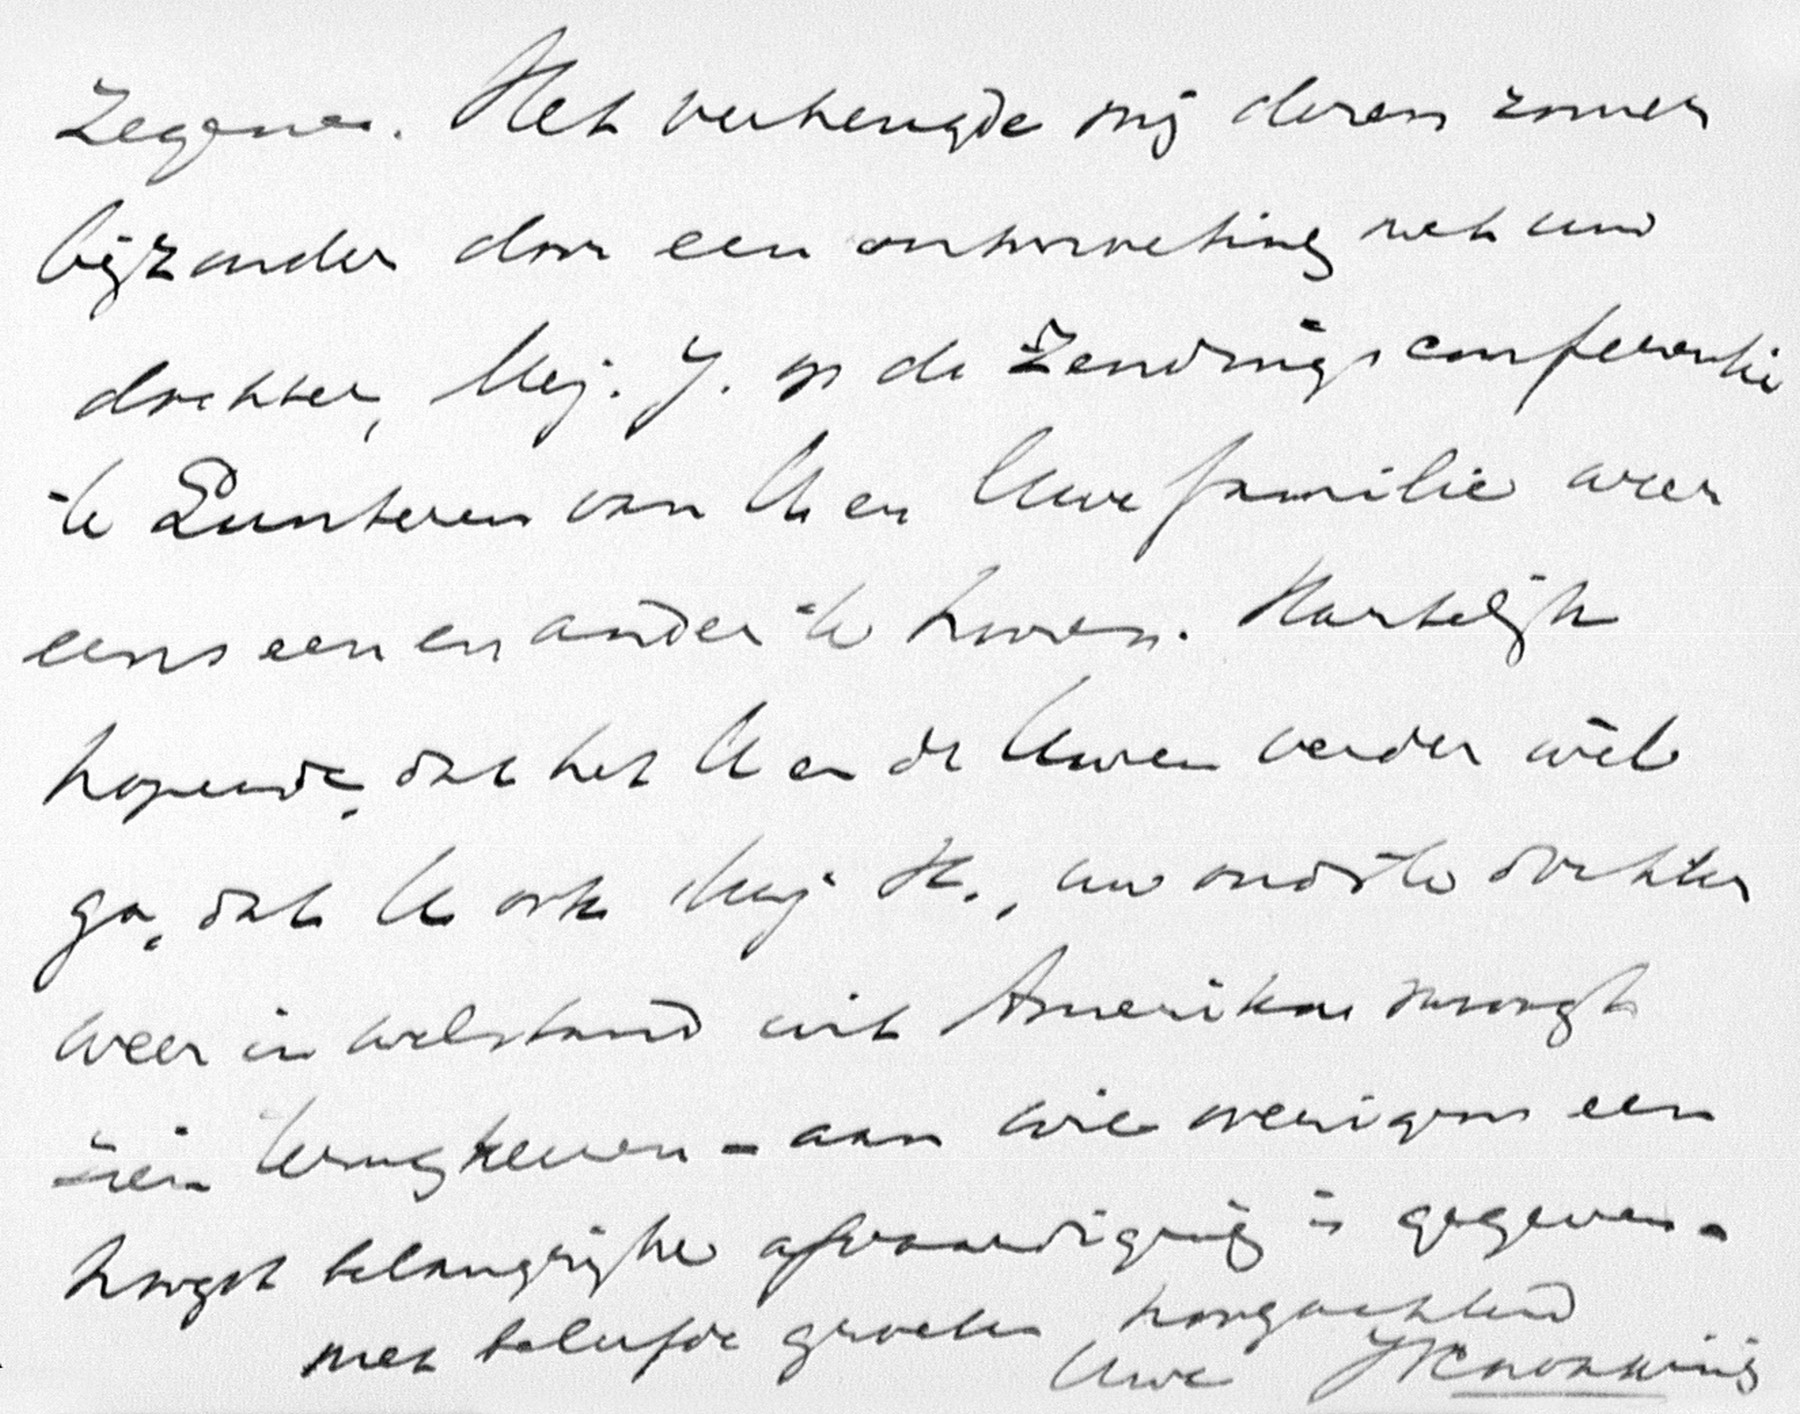 zegenen. Het verheugde mij dezen zomer
bijzonder door een ontmoeting met uw
dochter, Mej. J. op de Zendingsconferentie
te Lunteren van U en Uwe familie weer
eens een en ander te hooren. Hartelijk
hopende, dat het U en de Uwen verder wèl
ga, dat U ook Mej. H., uw oudste dochter
weer in welstand uit Amerika moogt
zien terugkeeren – aan wie overigens een
hoogst belangrijke afvaardiging is gegeven –
met beleefde groeten, hoogachtend
Uwe